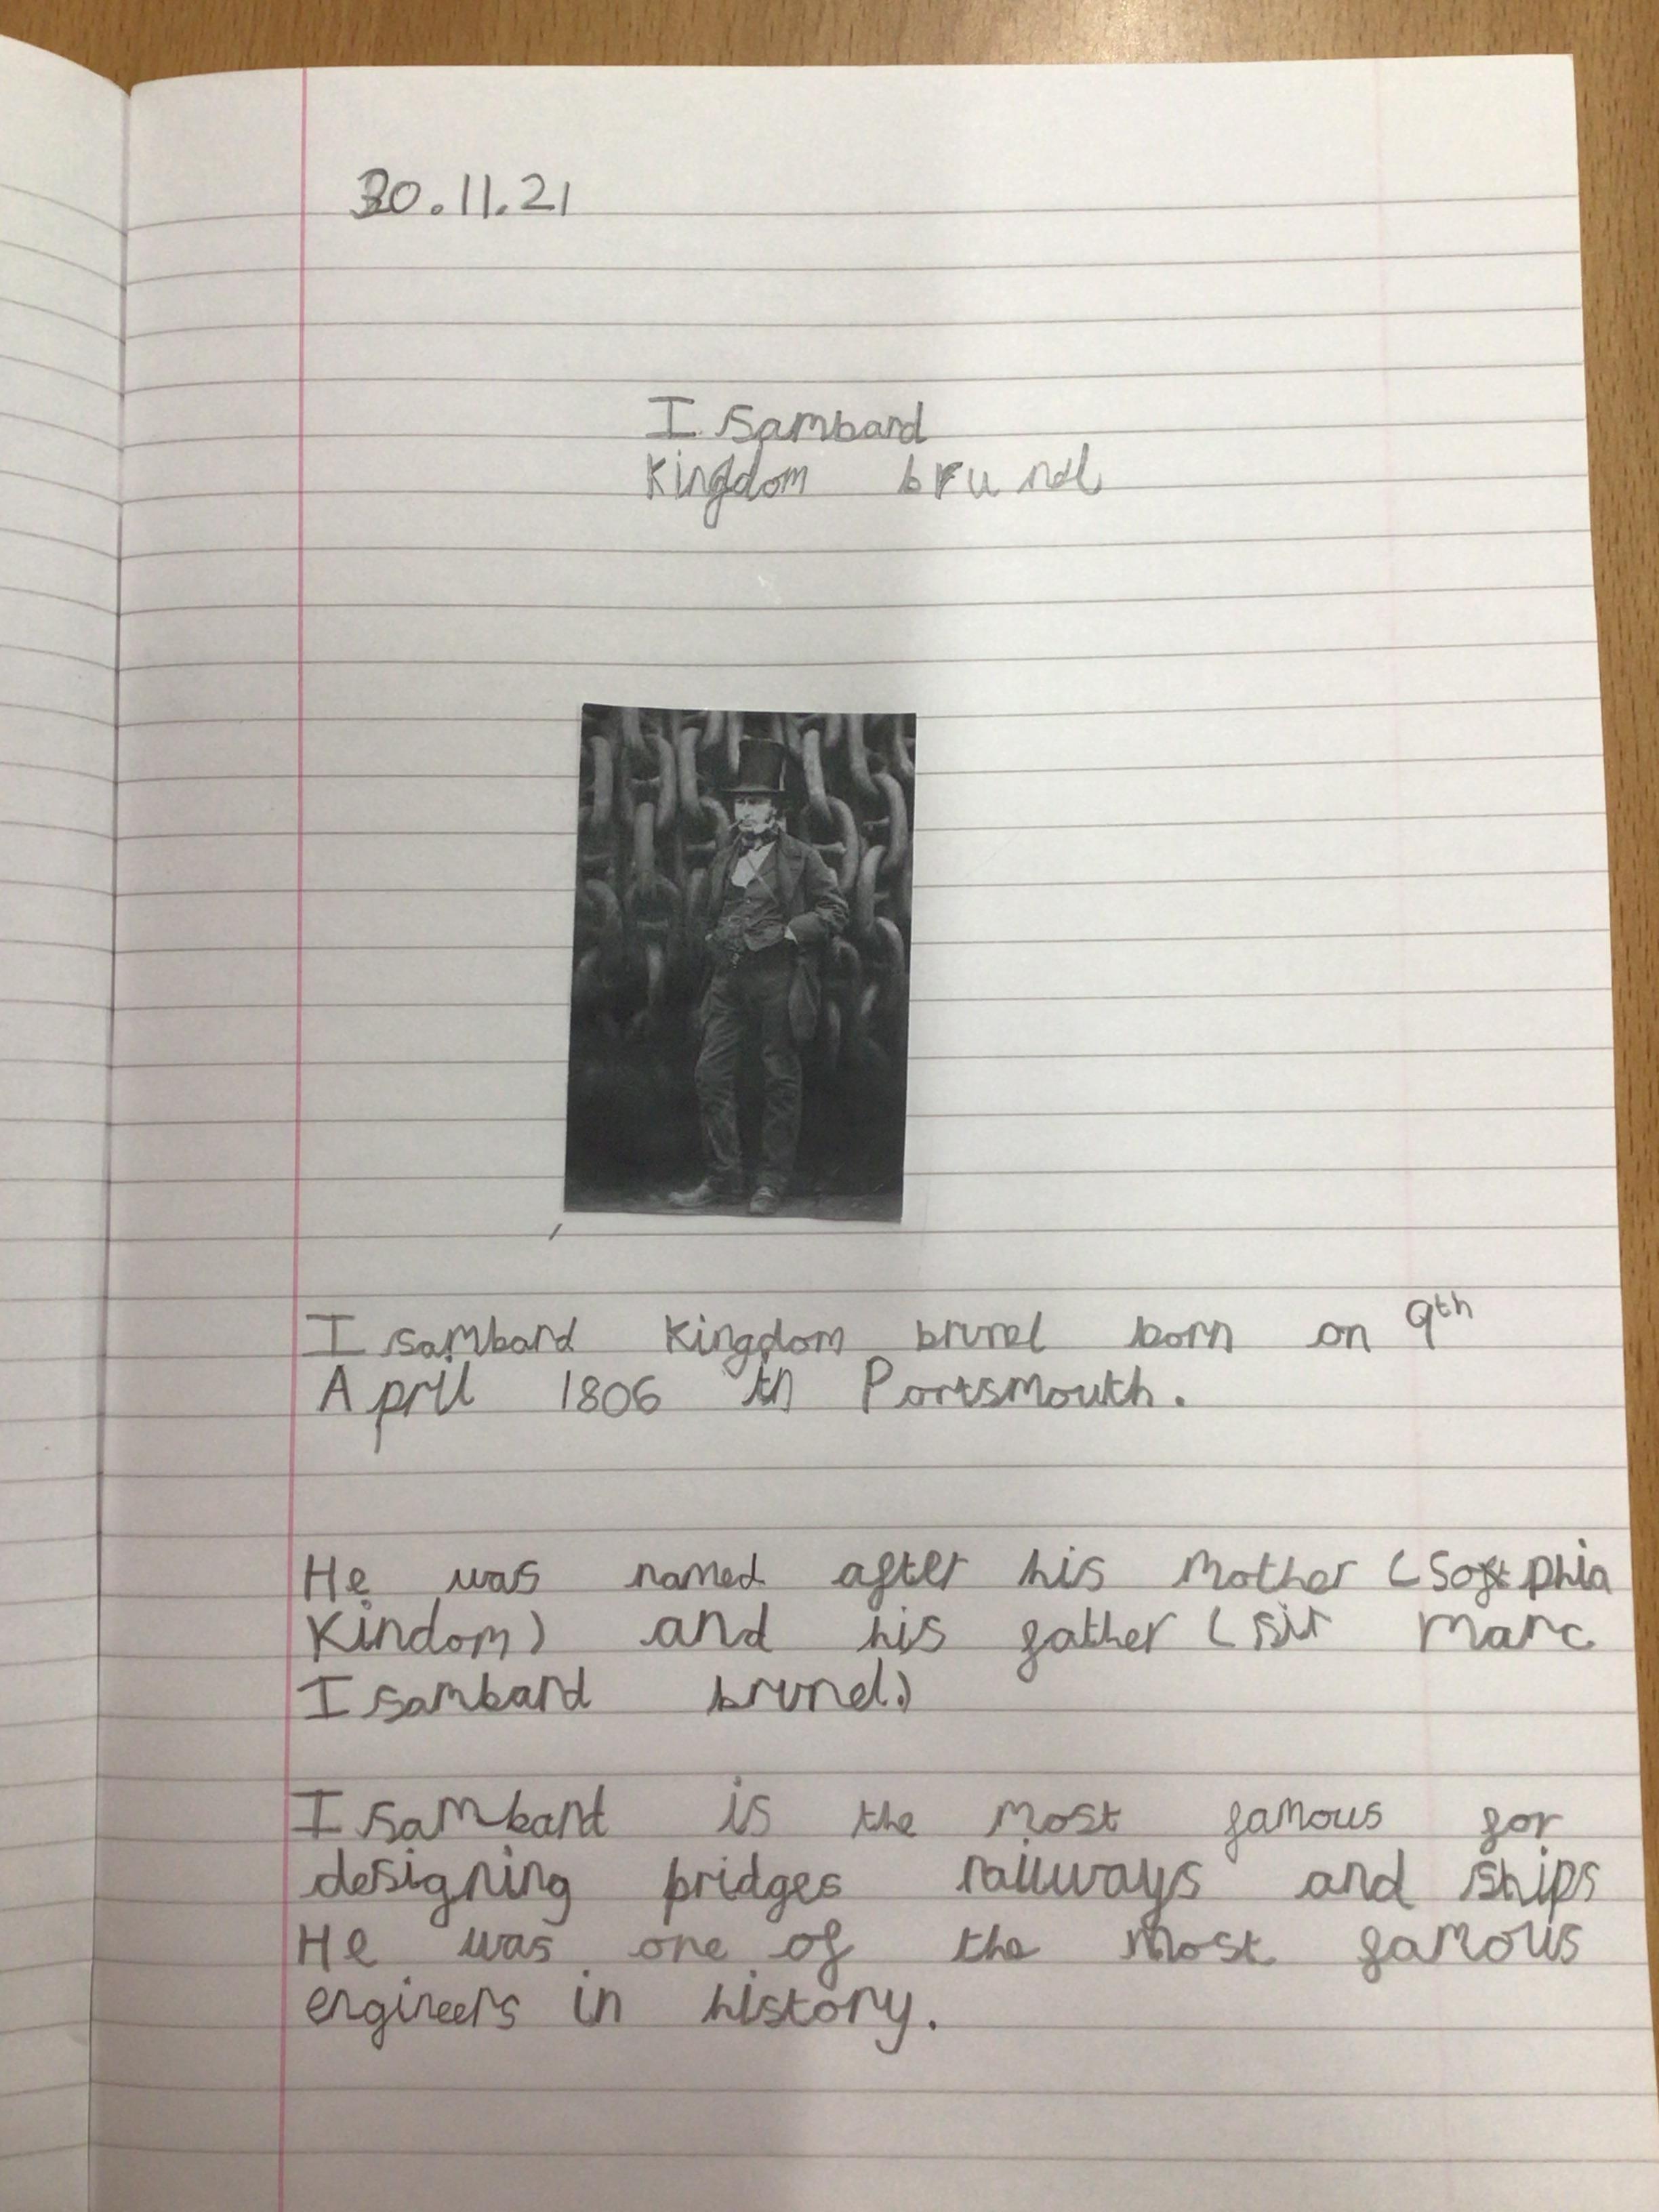 30.11.21
Isambard
Kingdom brunel
Isambard Kingdom brunel born on 9th
April 1806 in Portsmouth.
He was named after his Mother (Sophia
Kindom) and his father (sir Marc
Isambard brunel.)
Isambard is the most famous for
designing bridges railways and ships
He was one of the most famous
engineers in history.